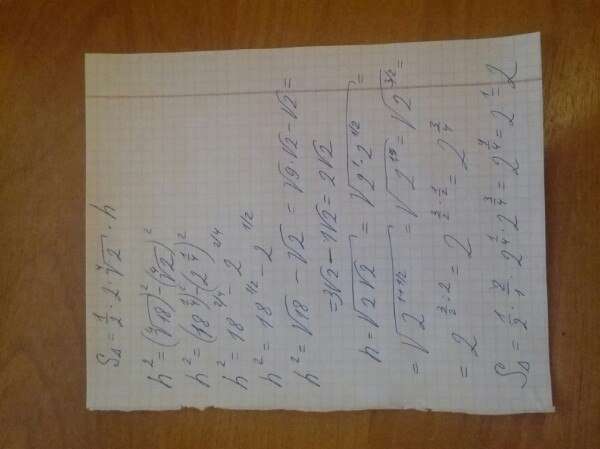 S△ = 1/2 · 2 · ⁴√2 · h
h² = (⁴√18)² - (⁴√2)²
h² = (18^(1/4))² - (2^(1/4))²
h² = 18^(2/4) - 2^(2/4)
h² = 18^(1/2) - 2^(1/2)
h² = √18 - √2 = √9·√2 - √2 =
= 3√2 - 1√2 = 2√2
h = √(2√2) = √(2¹·2^(1/2)) =
= √(2^(1+1/2)) = √(2^(1,5)) = √(2^(3/2)) =
= 2^(3/2 : 2) = 2^(3/2 · 1/2) = 2^(3/4)
S△ = 1/2 · 2/1 · 2^(1/4) · 2^(3/4) = 2^(4/4) = 2¹ = 2